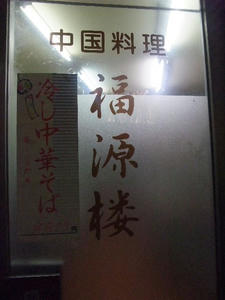 中国料理
福源楼
冷し中華そば